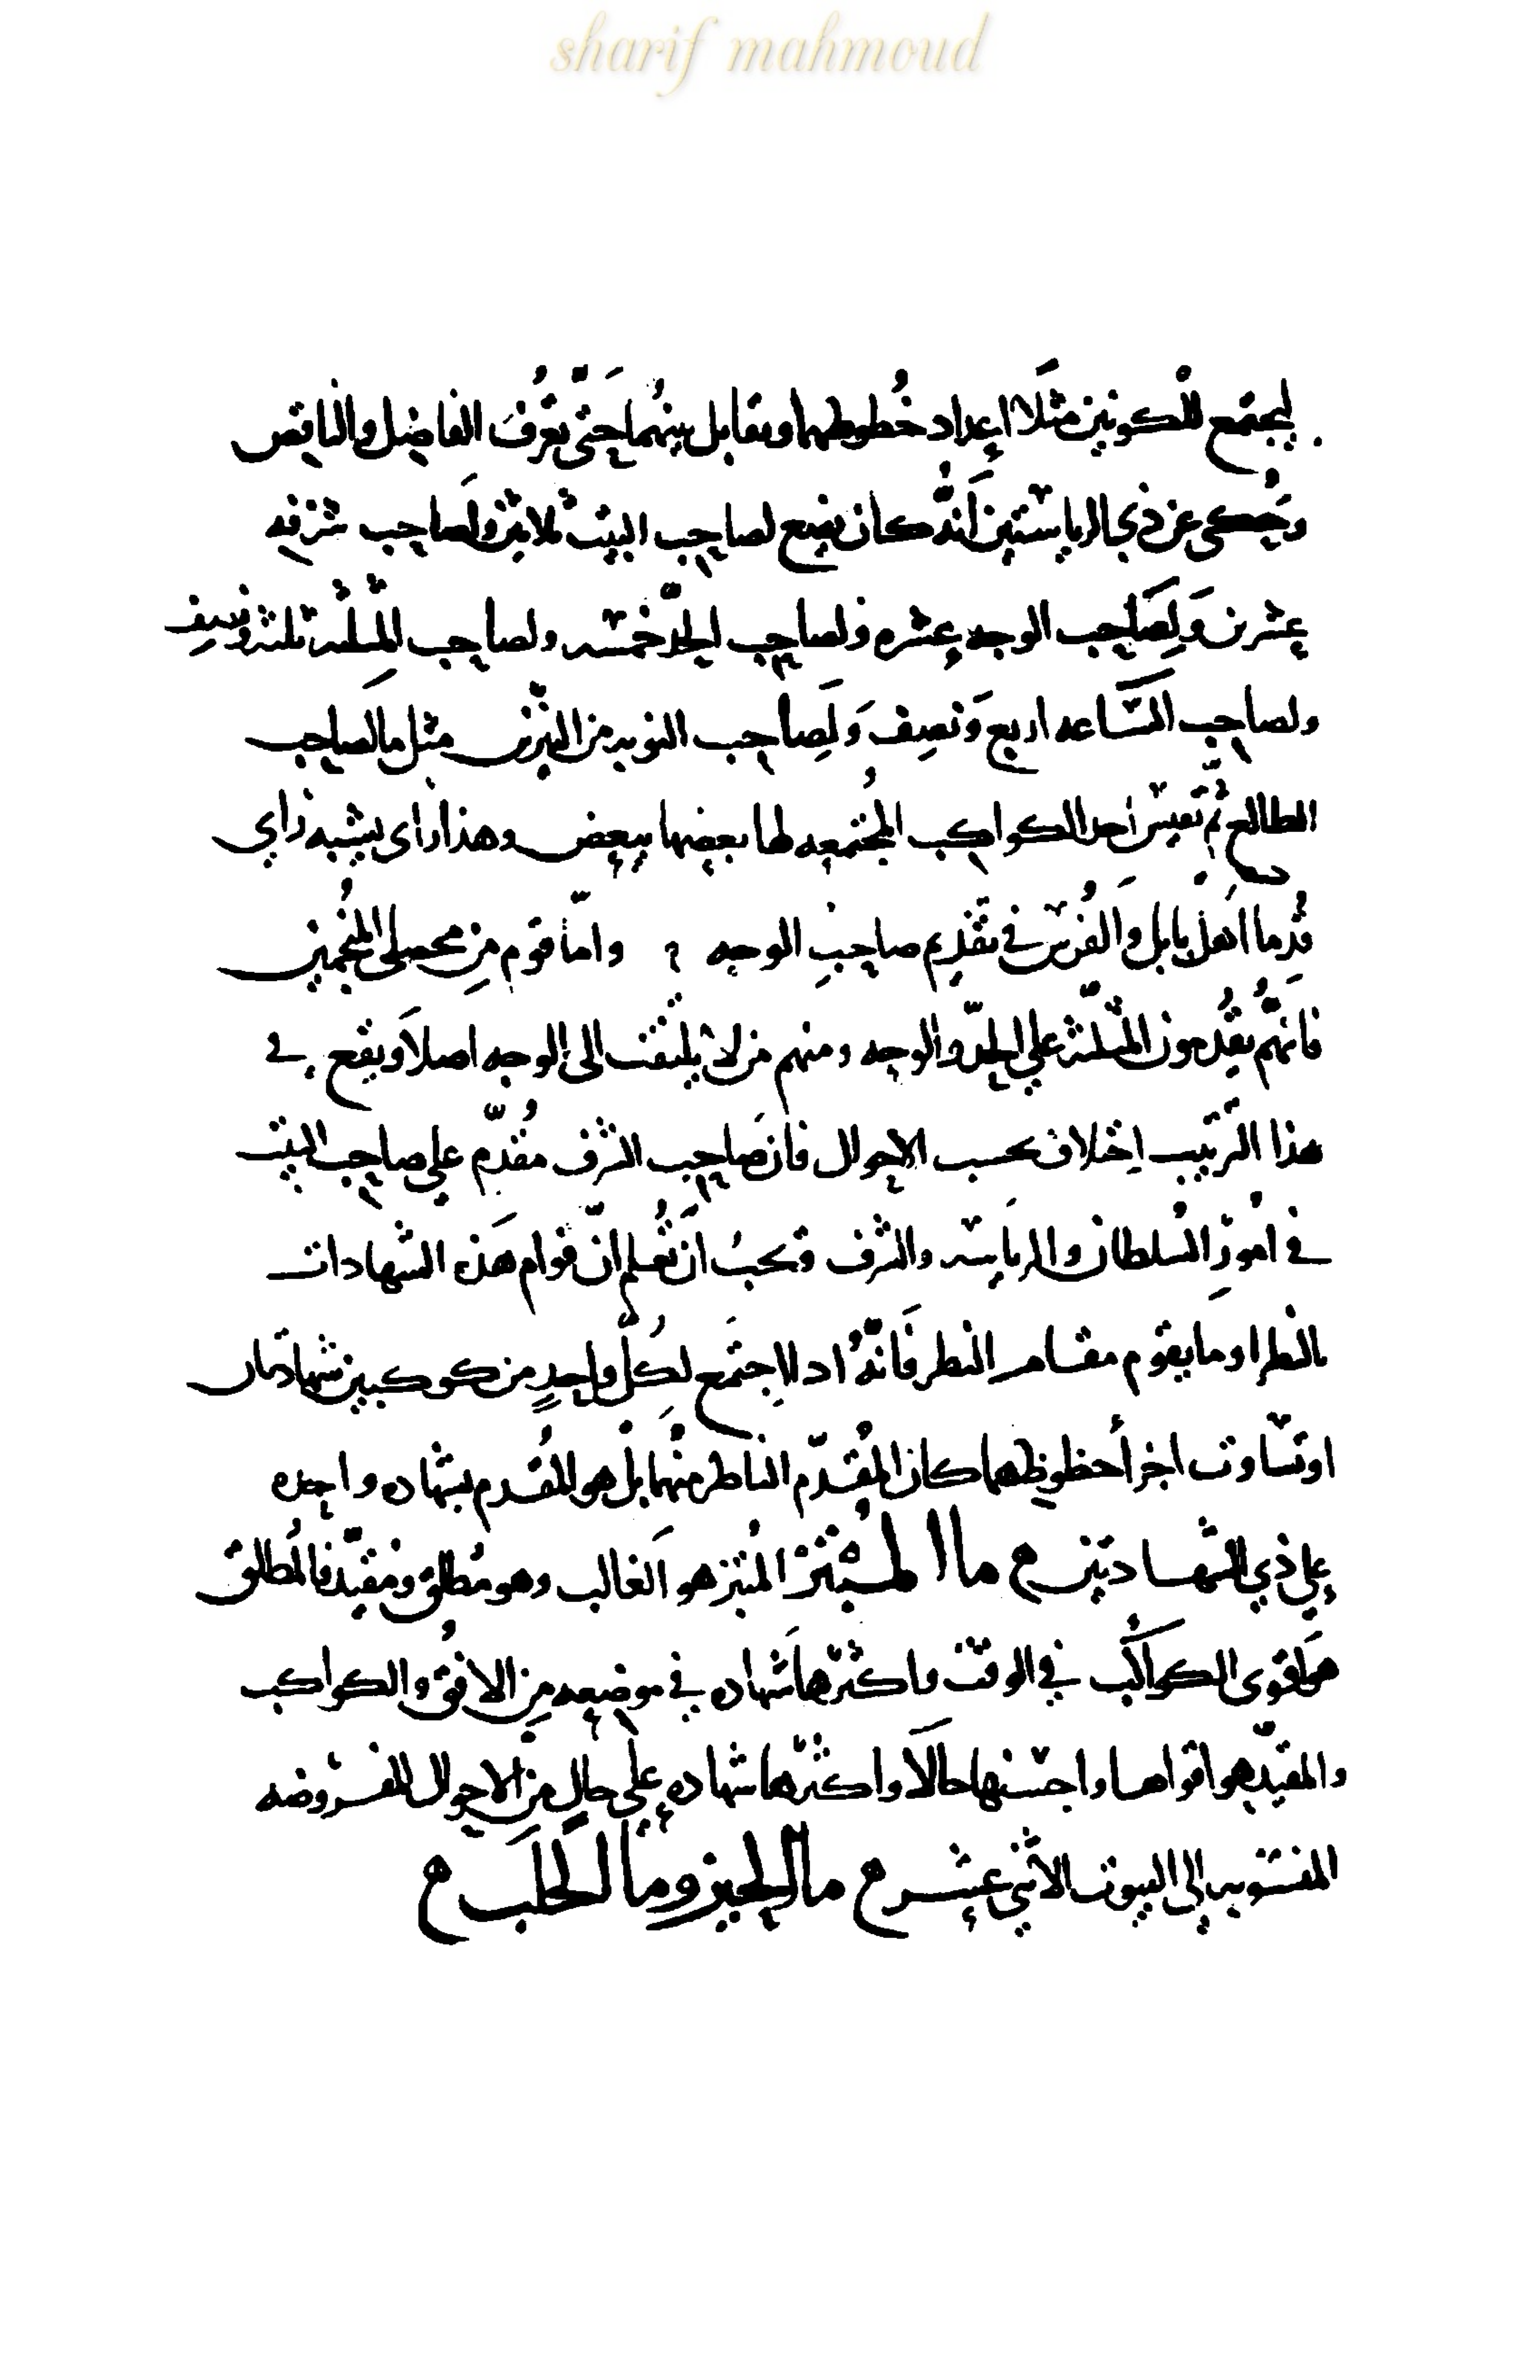 sharif mahmoud
ليجتمع للكوكبين مثلا اعداد حُظوظهما ويقابل بينهُما حَتّى يَعرُفَ الفاضِل والناقص
وحُكى عن ذي الرياستين اَنّهُ كان يضع لصاحب البيت ثلاثين ولصَاحب شرفه
عشرين وَلِصَاحِب الوجه عشره ولصاحب الحدّ خمسه ولصاحب المثلثه ثلثه ونصف
ولصاحب السّاعه اربع وَنصِف وَلِصاحب النوبه من النيّرين مثل ما لصاحب
الطالع ثمّ تقيس احد الكواكب المُجتمعه لها بعضها ببعض وهذا راى يشبه راي
قُدما اَهل بابل وَالفُرس في تقديم صاحبِ الوجه وامّا قوم مِن محصلى المنُجمين
فانهُّم يقُدمون المثلّثه على الحدّ والوجه ومنهم من لا يلتفت الى الوجه اصلاَ ويقع في
هذا الترتيب اِختلاف بحسب الاحوال فان صَاحب الشرف مقُدّم على صاحب البيت
في امُورِ السُلطان والرياسه والشرف ويجبُ اَن تُعلم انّ قوام هَذه الشهادات
بالنظر او ما يقوم مقام النطر فَانّهُ اذا اجتمع لكُلّ واحدٍ من كوكبين شهادتان
او تسّاوت اجزأ حظوظهما كان المقُدّم الناظر منهُما بَل هو المقُدم بشهاده واحده
على ذي الشهادتين ح ما المُبْتَزْ المُبتز هو اَلغالب وهو مُطلق ومُقيّد فالمُطلق
هو اَقوى الكواكُب في الوقت واكثرها شَهاده في موضعه مِن الافُق والكواكب
والمقيّد هو اقواها واحسنها حالاَ واكثرها شهاده على حالِ من الاحوال المفروضه
المنسوبه الى البيوت الاثني عشر ح ما الحيز وما الحَلب ح